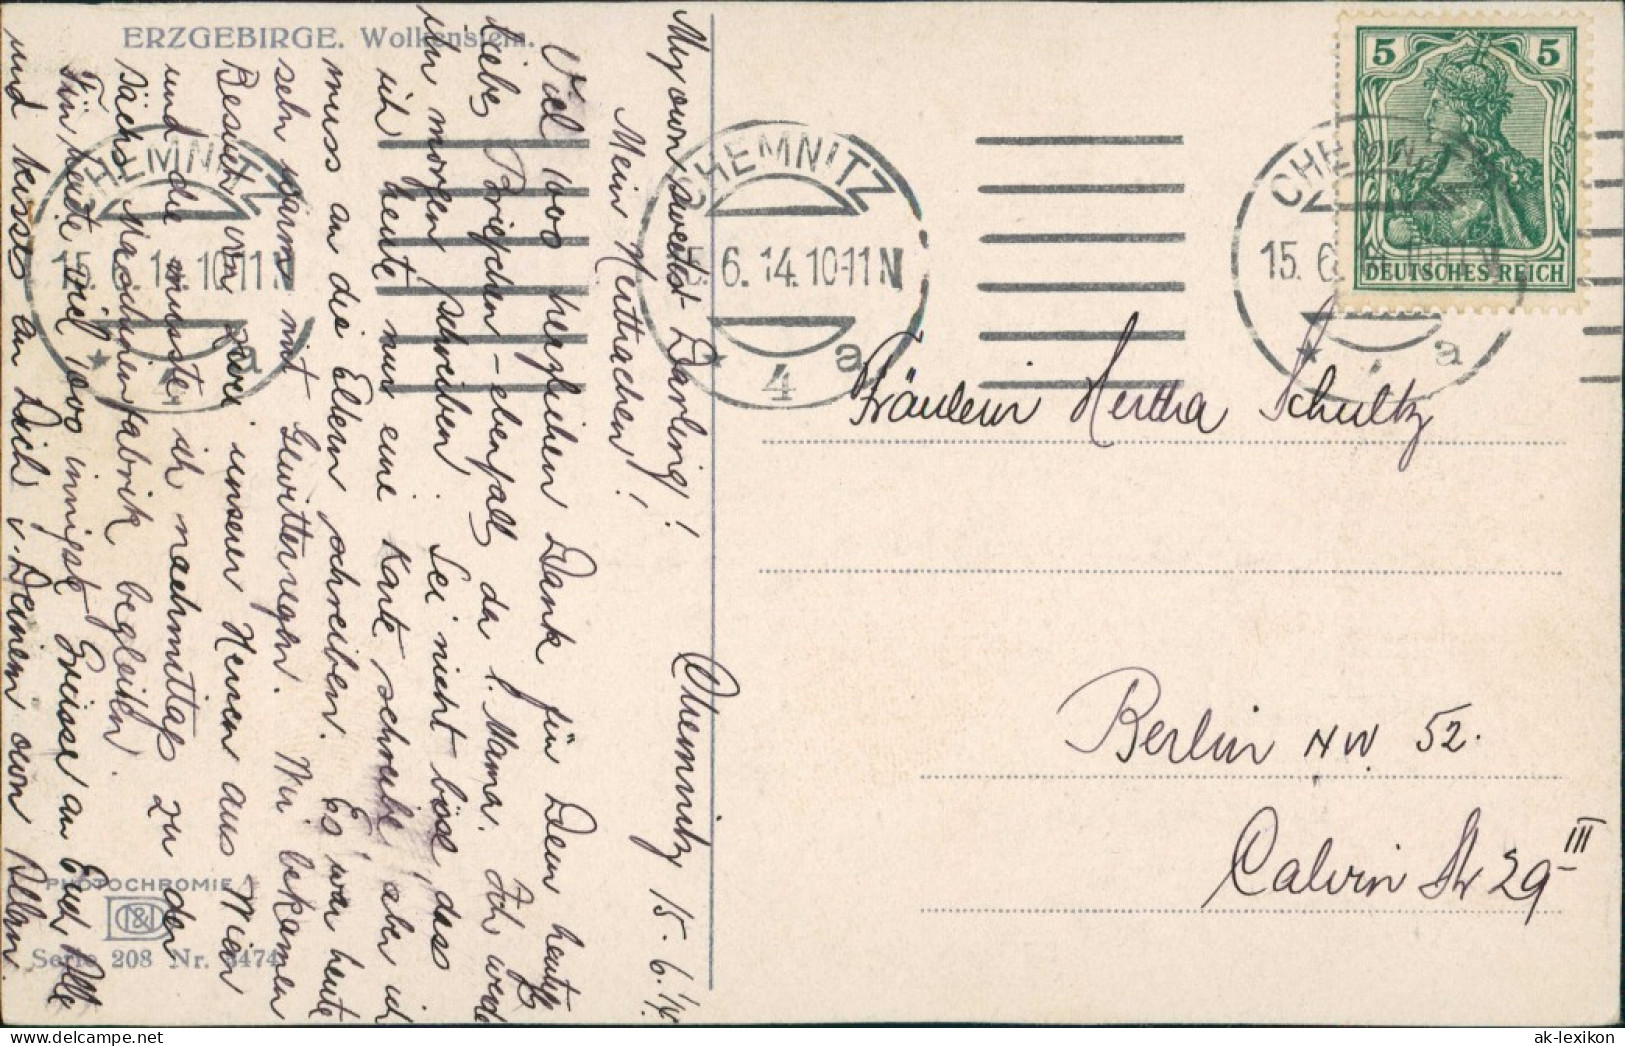 ERZGEBIRGE. Wolkenstein.
Chemnitz 15.6.14.
My own sweetest Darling!
Mein Herthachen!
Viel 1000 herzlichen Dank für Dein heutig
liebes Briefchen - ebenfalls da l. Mama. Ich werde
Ihr morgen schreiben. Sei nicht böse, dass
ich heute nur eine Karte schreibe, aber ich
muss an die Eltern schreiben. Es war heute
sehr warm mit Gewitterregen. Wir bekamen
Besuch von zwei unserer Herren aus Wien
und die musste ich nachmittags zu der
Sächs. Maschinenfabrik begleiten.
Für heute viel 1000 innigste Grüsse an Euch Alle
und Küsse an Dich v. Deinem own Allan
PHOTOCHROMIE
Serie 208 Nr. 3474
CHEMNITZ
15. 6. 14. 10-11 N
* 4 a
CHEMNITZ
15. 6. 14. 10-11 N
* 4 a
CHEMNITZ
15. 6. 14. 10-11 N
* a
5 5
DEUTSCHES REICH
Fräulein Hertha Schultz
Berlin NW 52.
Calvin Str 29 III
ak-lexikon